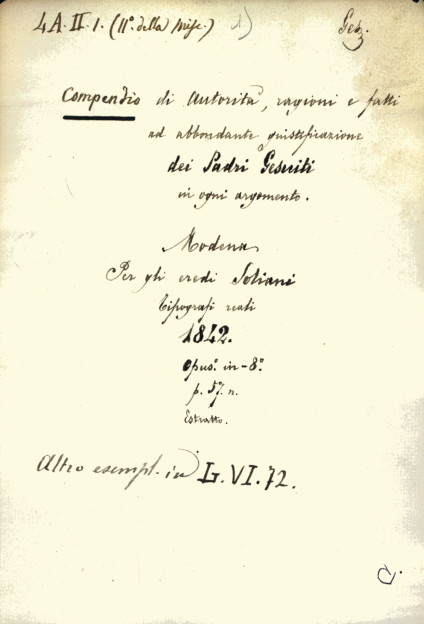 4A. II. 1. (11º. della Misc.) 1) Ges.
Compendio di Autorità, ragioni e fatti
ad abbondante giustificazione
dei Padri Gesuiti
in ogni argomento.
Modena
Per gli eredi Soliani
tipografi reali
1842.
Opus.º in-8º.
p. 57. n.
Estratto.
Altro esempl. in L. VI. 72.